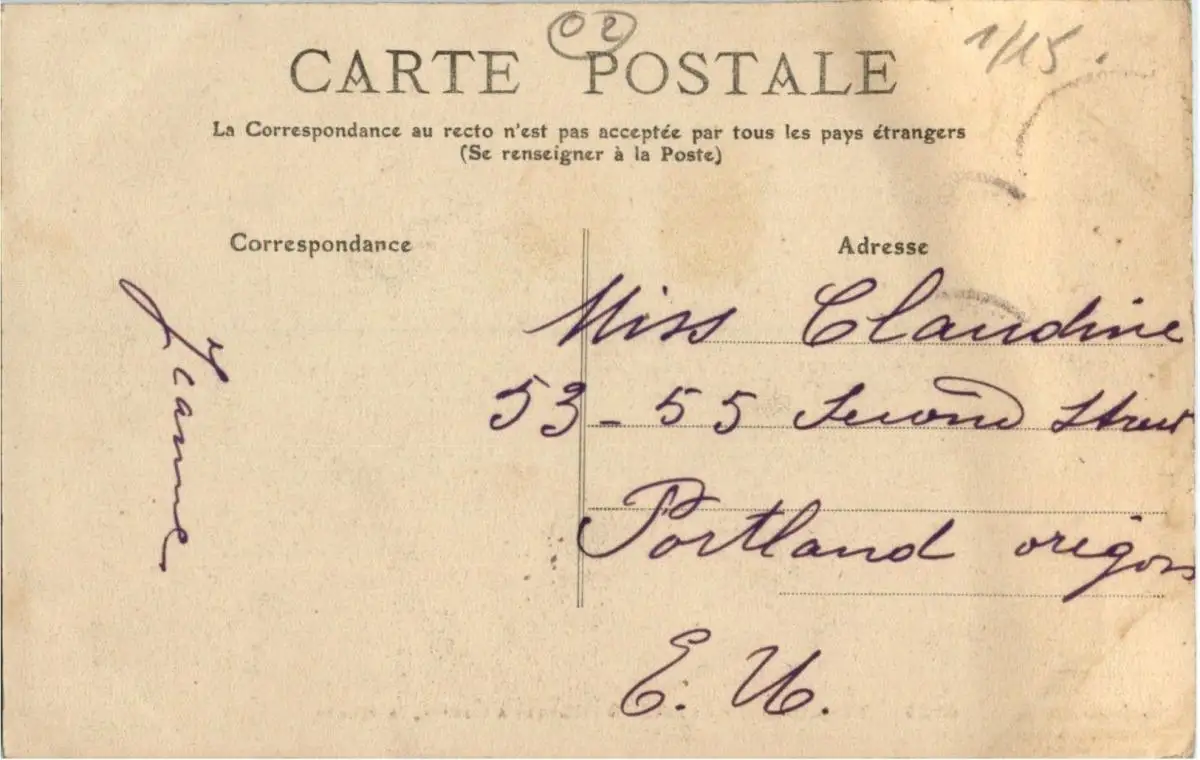 02
1/15.
CARTE POSTALE
La Correspondance au recto n'est pas acceptée par tous les pays étrangers
(Se renseigner à la Poste)
Correspondance
Adresse
Jeanne
Miss Claudine
53-55 Second Street
Portland origon
E. U.